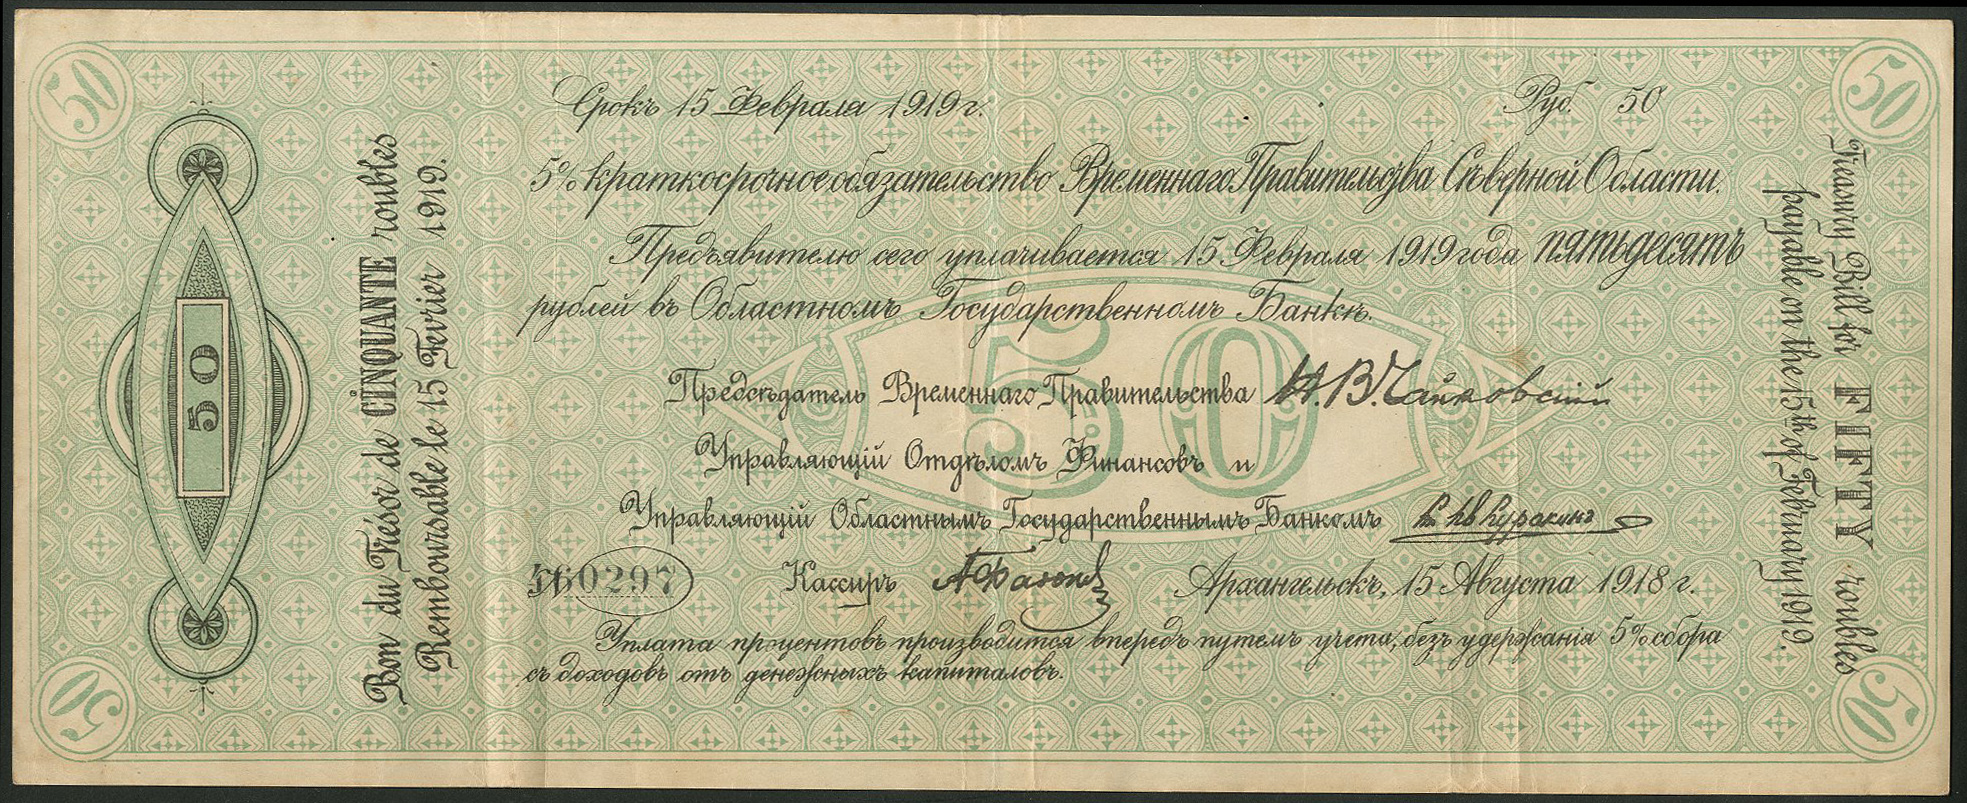 50
50
Срокъ 15 Февраля 1919 г.
Руб. 50
5% краткосрочное обязательство Временнаго Правительства Сѣверной Области.
Предъявителю сего уплачивается 15 Февраля 1919 года пятьдесятъ
рублей въ Областномъ Государственномъ Банкѣ.
50
Предсѣдатель Временнаго Правительства Н. В. Чайковскій
Управляющій Отдѣломъ Финансовъ и
Управляющій Областнымъ Государственнымъ Банкомъ Куракинъ
60297
Кассиръ
Архангельскъ, 15 Августа 1918 г.
Уплата процентовъ производится впередъ путемъ учета, безъ удержанія 5% сбора
съ доходовъ отъ денежныхъ капиталовъ.
50
Bon du Trésor de CINQUANTE roubles
Remboursable le 15 Fevrier 1919.
Treasury Bill for FIFTY roubles
payable on the 15th of February 1919.
50
50